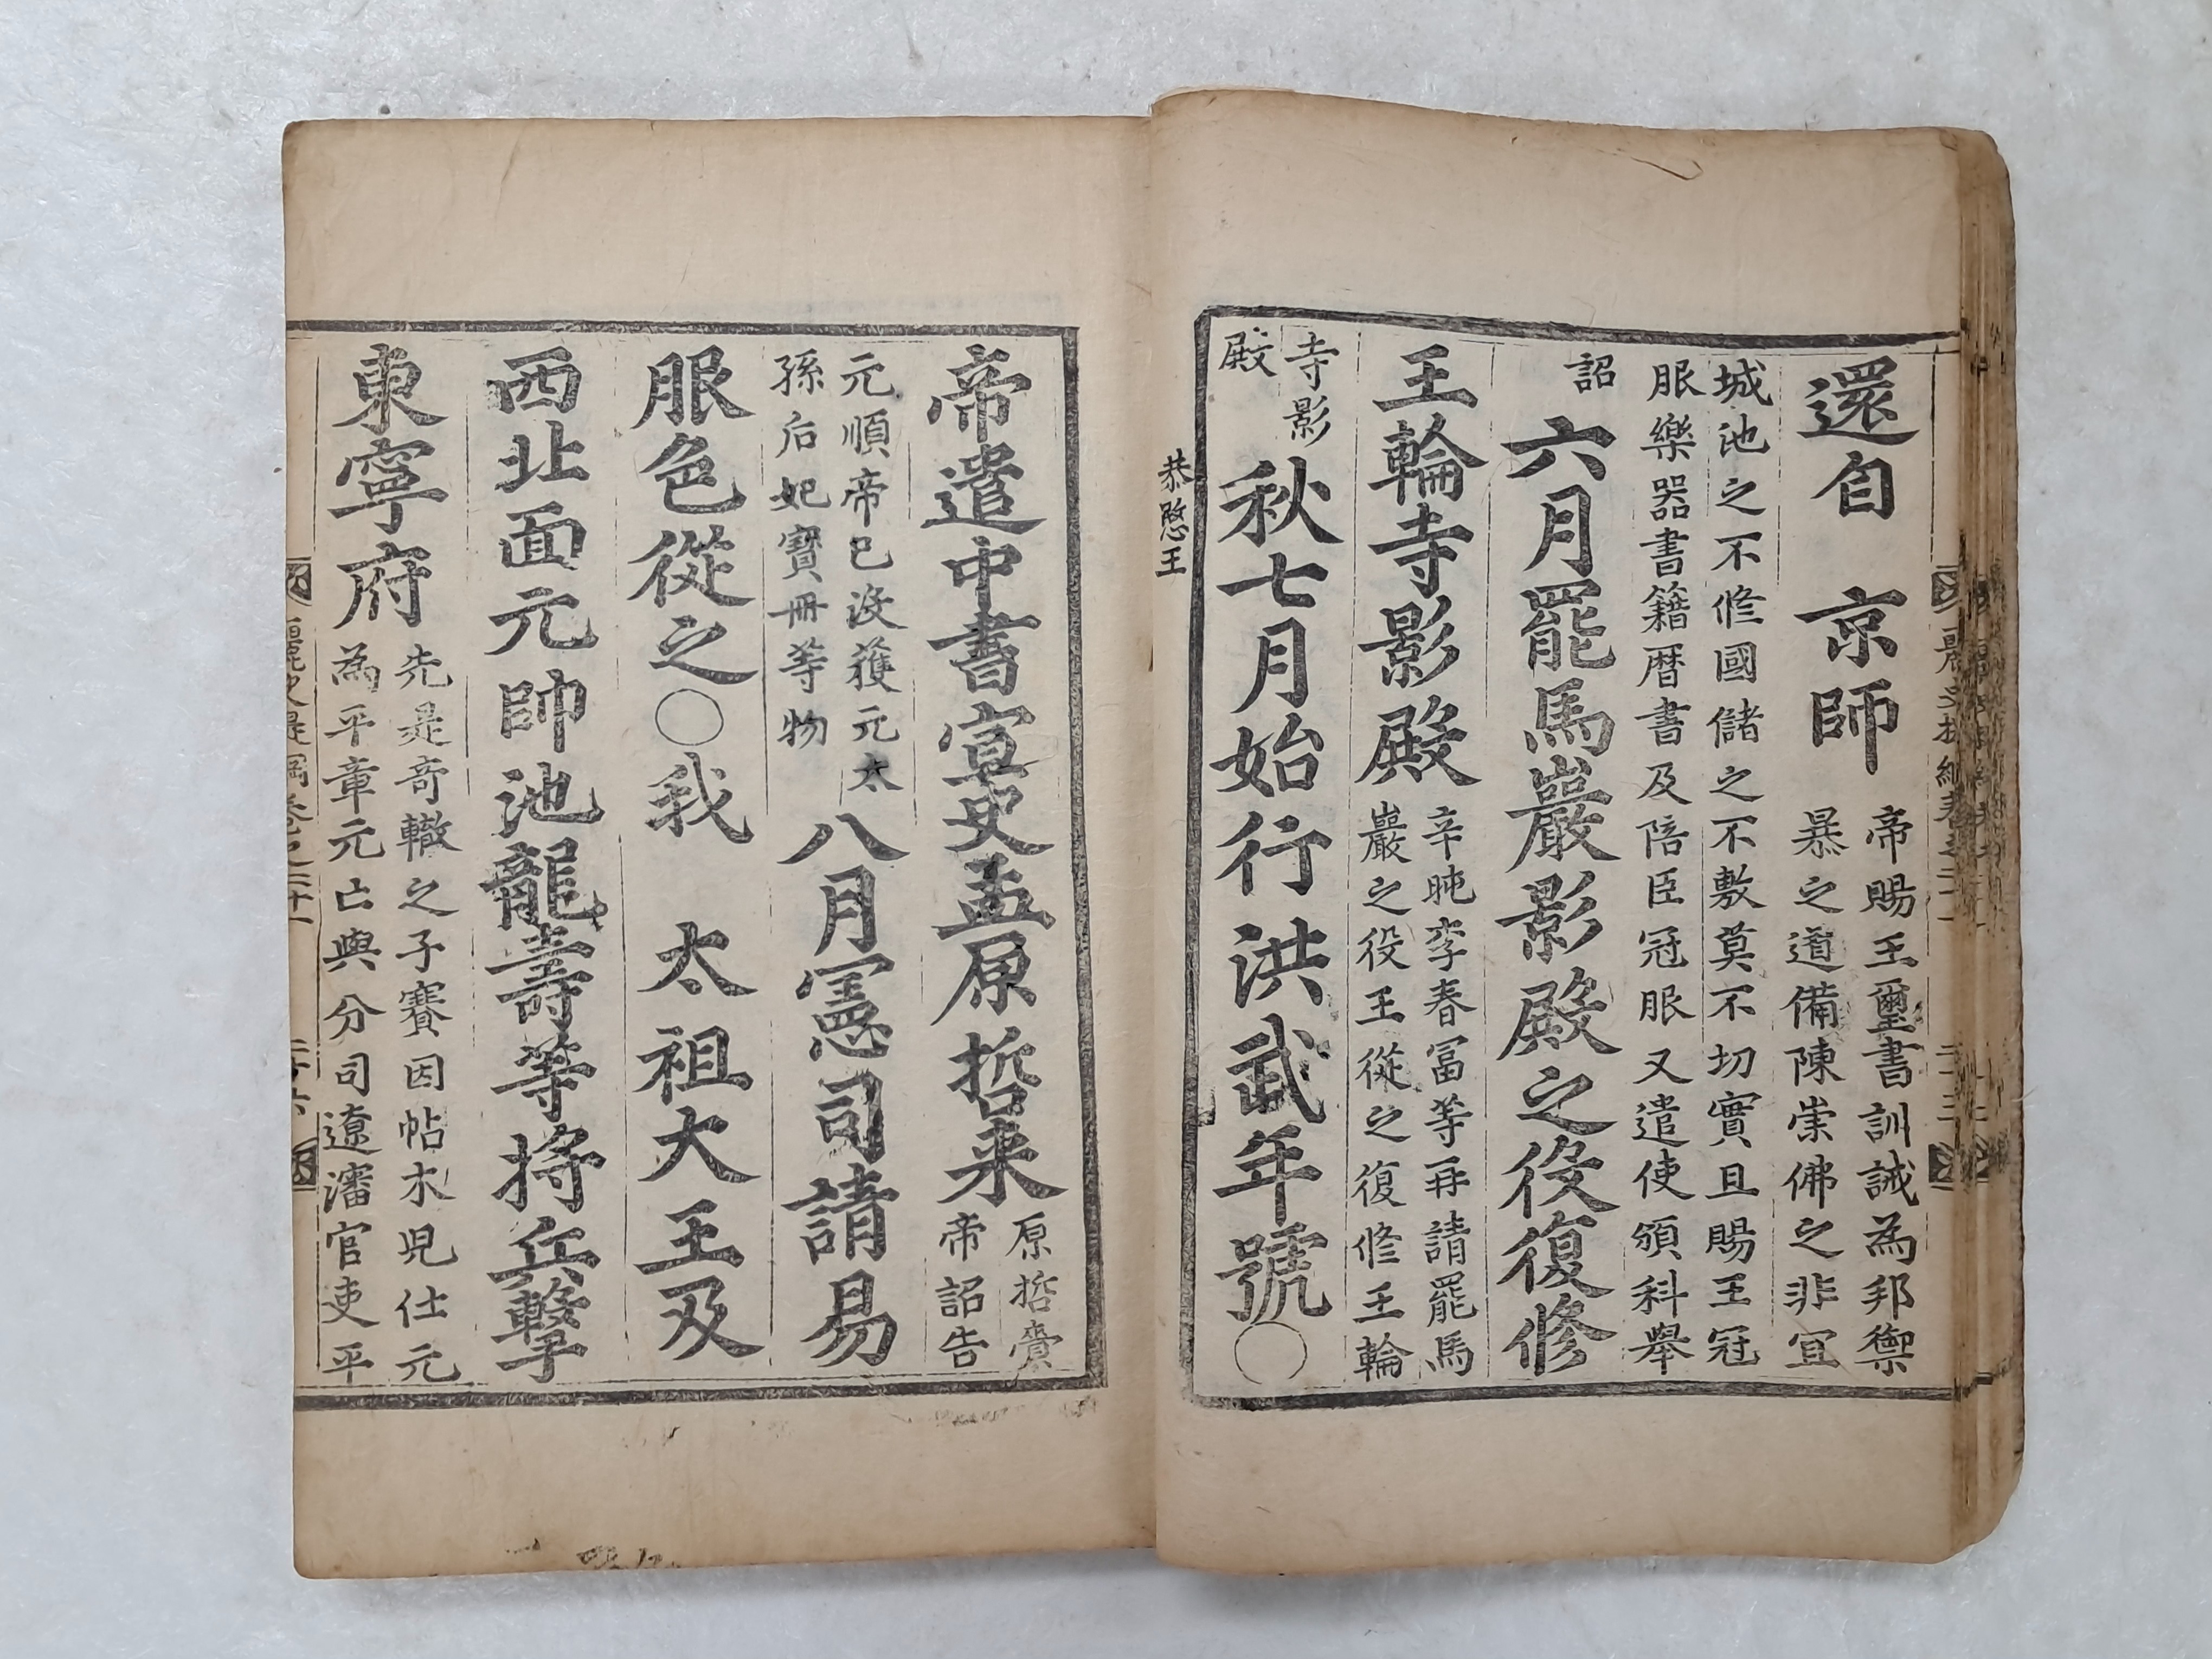 還自　京師
帝賜王璽書訓誡為邦禦
暴之道備陳崇佛之非宜
城池之不修國儲之不敷莫不切實且賜王冠
服樂器書籍曆書及陪臣冠服又遣使頒科舉
詔
六月罷馬巖影殿之役復修
王輪寺影殿
辛旽李春冨等再請罷馬
巖之役王從之復修王輪
寺影
殿
秋七月始行洪武年號○
恭愍王
帝遣中書宣史孟原哲来
原哲賫
帝詔告
元順帝已没獲元太
孫后妃寶冊等物
八月憲司請易
服色從之○我　太祖大王及
西北面元帥池龍壽等将兵擊
東寧府
先是竒轍之子賽因帖木児仕元
為平章元亡與分司遼瀋官吏平